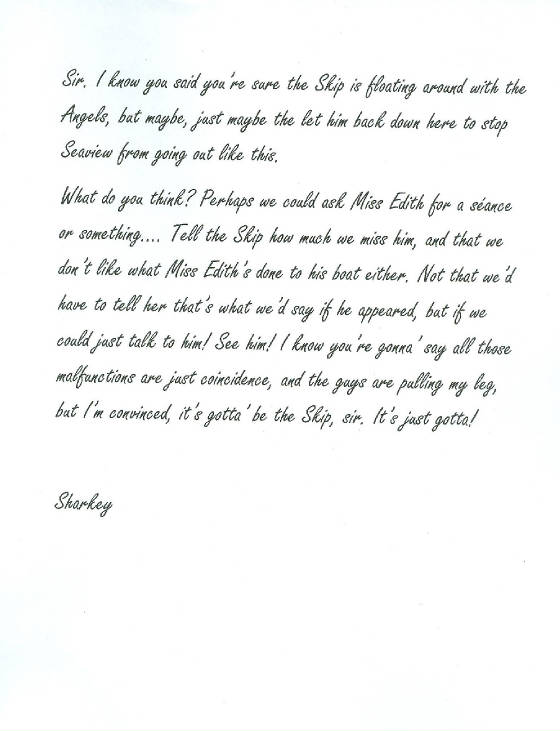 Sir. I know you said you're sure the Skip is floating around with the
Angels, but maybe, just maybe the let him back down here to stop
Seaview from going out like this.
What do you think? Perhaps we could ask Miss Edith for a séance
or something.... Tell the Skip how much we miss him, and that we
don't like what Miss Edith's done to his boat either. Not that we'd
have to tell her that's what we'd say if he appeared, but if we
could just talk to him! See him! I know you're gonna' say all those
malfunctions are just coincidence, and the guys are pulling my leg,
but I'm convinced, it's gotta' be the Skip, sir. It's just gotta!
Sharkey